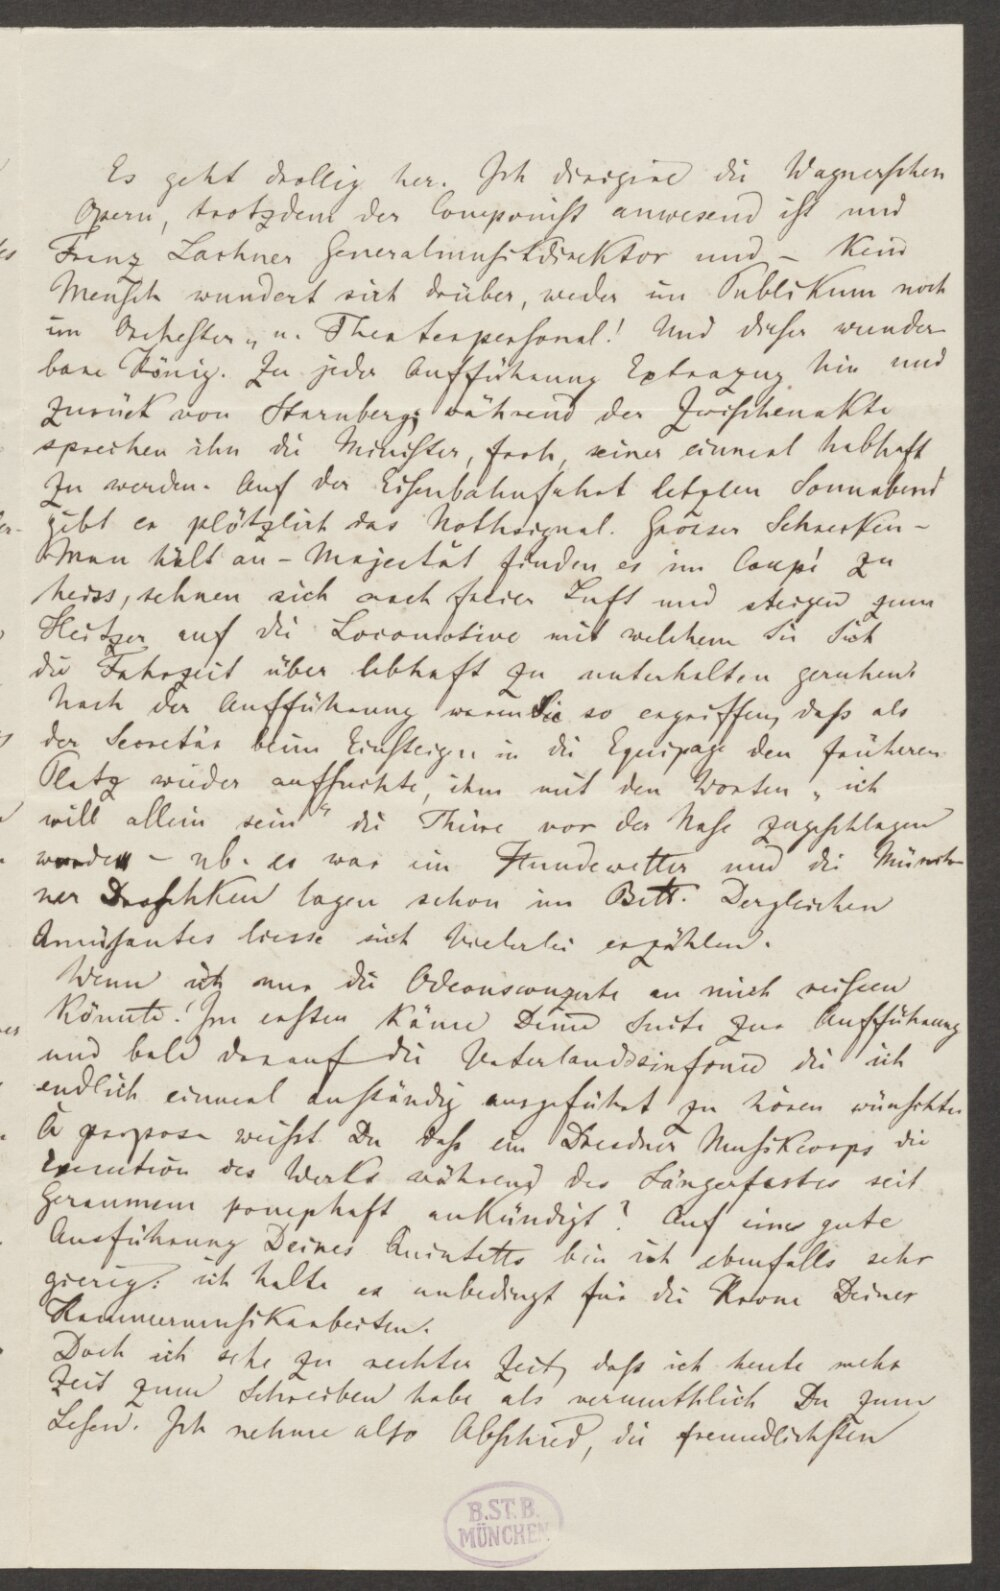 Es geht drollig her. Ich dirigire die Wagnerschen
Opern, trotzdem der Componist anwesend ist und
Franz Lachner Generalmusikdirektor und – kein
Mensch wundert sich drüber, weder im Publikum noch
im Orchester- u. Theaterpersonal! Und dieser wunder-
bare König. Zu jeder Aufführung Extrazug hin und
zurück von Starnberg; während der Zwischenakte
sprechen ihn die Minister, froh, seiner einmal habhaft
zu werden. Auf der Eisenbahnfahrt letzten Sonnabend
giebt er plötzlich das Nothsignal. Grosser Schrecken –
Man hält an – Majestät finden es im Coupé zu
heiss, sehnen sich nach freier Luft und steigen zum
Heitzer auf die Locomotive mit welchem Sie Sich
die Fahrzeit über lebhaft zu unterhalten geruhen.
Nach der Aufführung waren Sie so ergriffen, daß als
der Secretär beim Einsteigen in die Equipage den früheren
Platz wieder aufsuchte, ihm mit den Worten „ich
will allein sein“ die Thüre vor der Nase zugeschlagen
wurde – nb. es war ein Hundewetter und die Münch-
ner Droschken lagen schon im Bett. Dergleichen
Amüsantes liesse sich vielerlei erzählen.
Wenn ich nur die Odeonsconzerte an mich reissen
könnte! Im ersten käme Deine Suite zur Aufführung
und bald darauf die Vaterlandssinfonie die ich
endlich einmal anständig ausgeführt zu hören wünschte.
À propos weisst Du daß ein Dresdner Musikcorps die
Execution des Werks während des Sängerfestes seit
Geraumem pomphaft ankündigt? Auf eine gute
Ausführung Deines Quintetts bin ich ebenfalls sehr
gierig: ich halte es unbedingt für die Krone Deiner
Kammermusikarbeiten.
Doch ich sehe zu rechter Zeit, daß ich heute mehr
Zeit zum Schreiben habe als vermuthlich Du zum
Lesen. Ich nehme also Abschied, die freundlichsten
B.ST.B.
MÜNCHEN